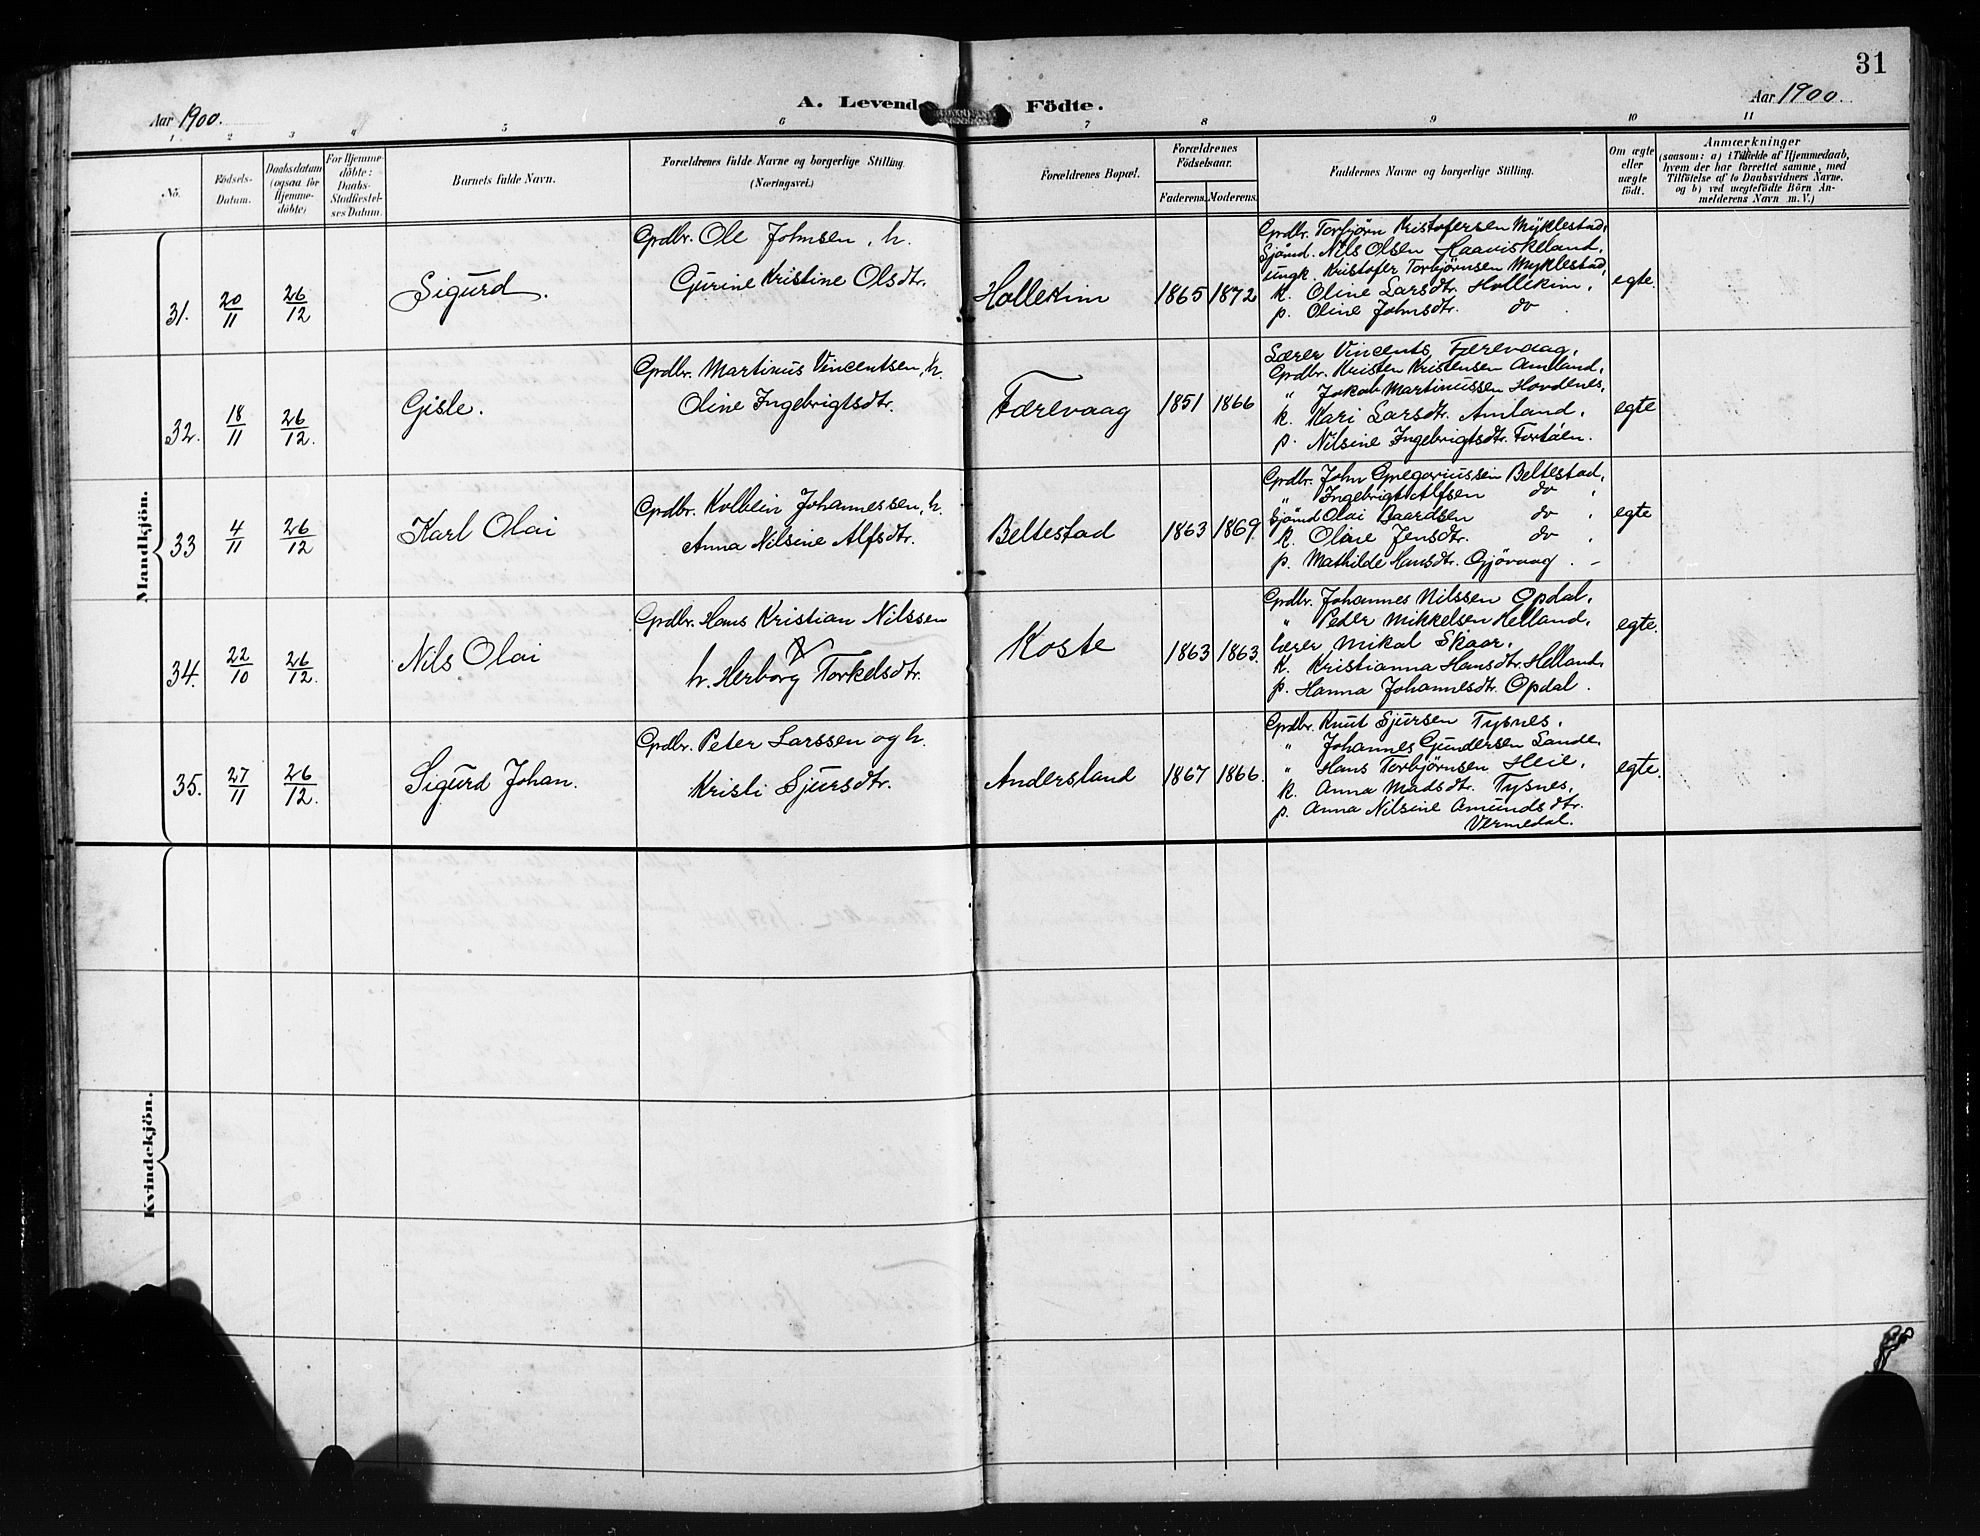 31
Aar 1900.
A. Levende Födte.
Aar 1900.
1 2 3 4 5 6 7 8 9 10 11
No.
Födsels-
Datum.
Daabsdatum
(ogsaa for
Hjemme-
döbte)
For Hjemme-
döbte:
Daabs-
Stadfæstel-
ses Datum.
Barnets fulde Navn.
Forældrenes fulde Navne og borgerlige Stilling.
(Næringsvei.)
Forældrenes Bopæl.
Forældrenes
Födselsaar.
Faderens. Moderens.
Faddernes Navne og borgerlige Stilling.
Om ægte
eller
uægte
født.
Anmærkninger
(saasom: a) i Tilfælde af Hjemmedaab,
hvem der har forrettet samme, med
Tilföielse af to Daabsvidners Navne.
og b) ved uægtefödte Börn An-
melderens Navn m. V.)
Mandkjön.
31. 20/11 26/12 Sigurd.
Grdbr. Ole Johnsen, h.
Gurine Kristine Olsdtr.
Hollekim 1865 1872
Grdbr. Torbjørn Kristofersen Myklestad,
Sjömd. Nils Olsen Haaviskeland,
ungk. Kristofer Torbjørnsen Myklestad,
k. Oline Larsdtr. Hollekim,
p. Oline Johnsdtr. do
egte.
32. 18/11 26/12. Gisle.
Grdbr. Martinus Vincentsen, h.
Oline Ingebrigtsdtr.
Færevaag 1851 1866
Lærer Vincents Færevaag,
Grdbr. Kristen Kristensen Amland,
" Jakob Martinussen Hovdenes,
k. Kari Larsdtr. Amland,
p. Nilsine Ingebrigtsdtr. Tortåen.
egte
33 4/11 26/12 Karl Olai
Grdbr. Kolbein Johannessen, h.
Anna Nilsine Alfsdtr.
Beltestad 1863 1869
Grdbr. John Gregoriussen Beltestad,
" Ingebrigt Alfsen do,
Sjömd Olai Baardsen do,
k. Oline Jensdtr. do,
p. Mathilde Hansdtr. Gjövaag. -
egte
34. 22/10 26/12. Nils Olai
Grdbr. Hans Kristian Nilssen
h. Herborg Torkelsdtr.
Koste 1863 1863.
Grdbr. Johannes Nilssen Opdal,
" Peder Mikkelsen Helland,
Lærer Mikal Skaar,
k. Kristianna Hansdtr. Helland,
p. Hanna Johannesdtr. Opdal.
egte.
35. 27/11 26/12. Sigurd Johan.
Grdbr. Peter Larssen og h.
Kristi Sjursdtr.
Andersland 1867 1866.
Grdbr. Knut Sjursen Tysnes,
" Johannes Gundersen Lande,
" Hans Torbjørnsen Heie,
k. Anna Madsdtr. Tysnes,
p. Anna Nilsine Amundsdtr.
Vermedal.
egte.
Kvindekjön.